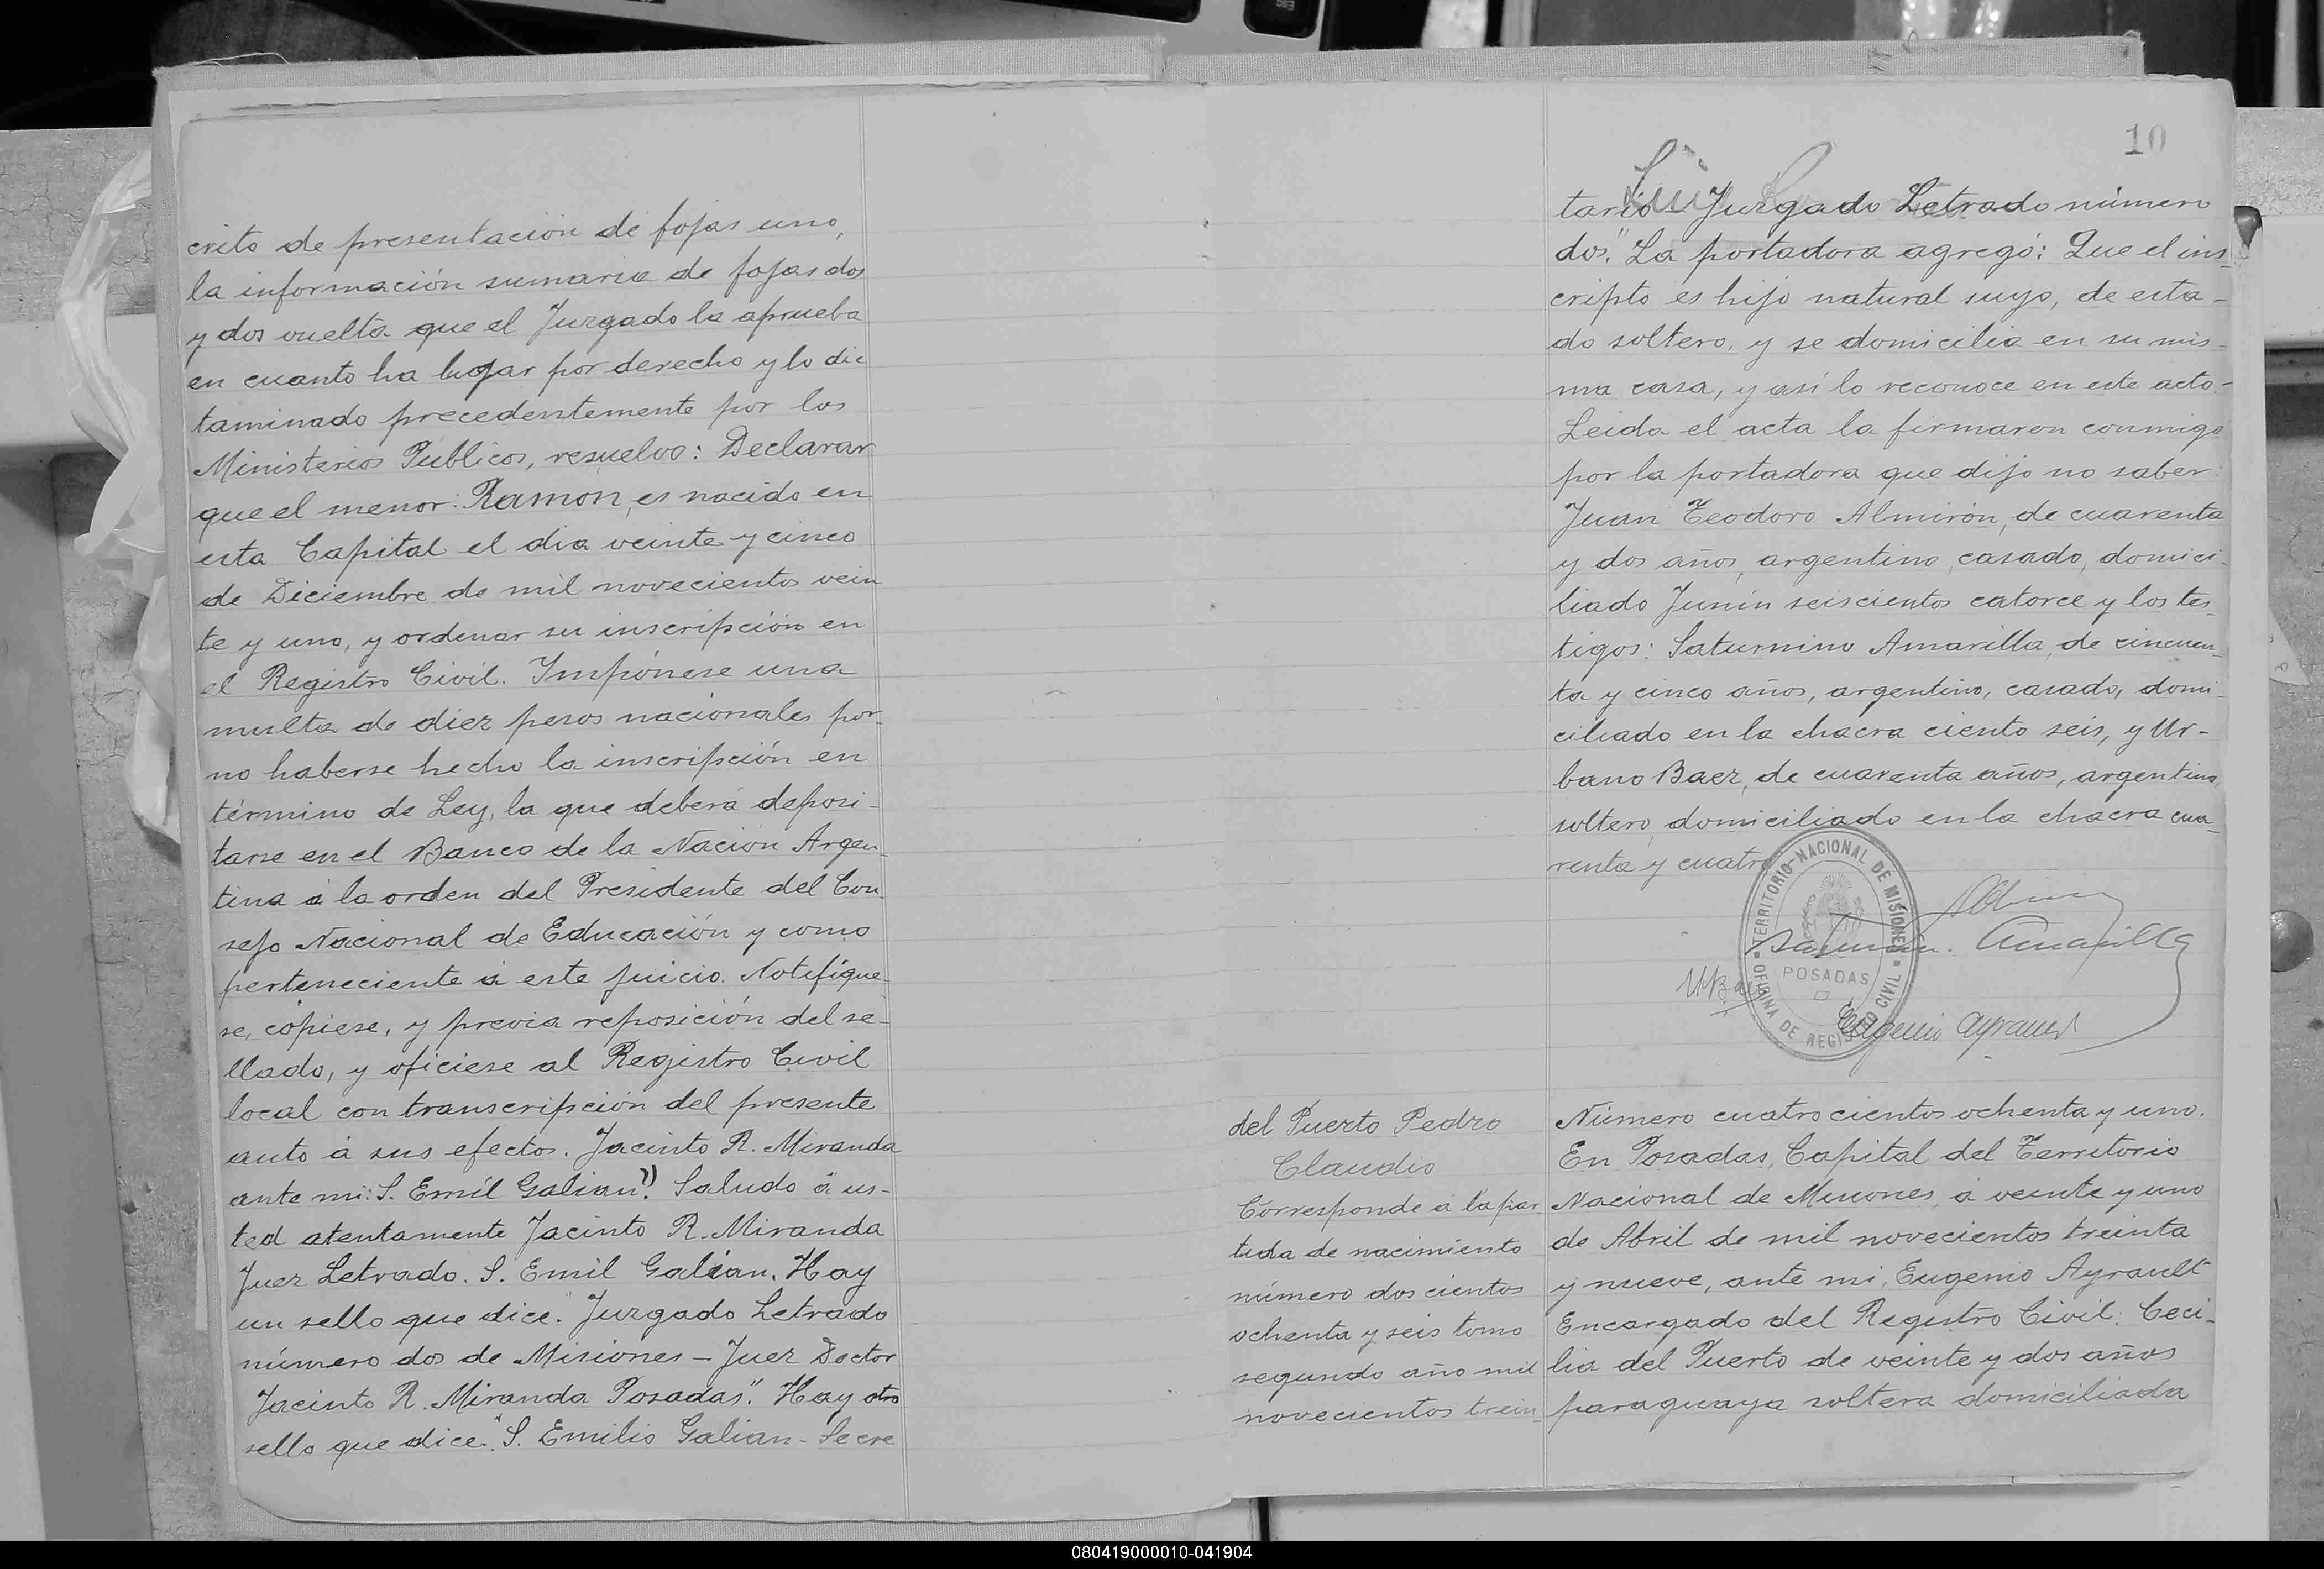 crito de presentación de fojas uno,
la información sumaria de fojas dos
y dos vuelta que el Juzgado la aprueba
en cuanto ha lugar por derecho y lo dic
taminado precedentemente por los
Ministerios Publicos, resuelvo: Declarar
que el menor: Ramon, es nacido en
esta Capital el dia veinte y cinco
de Diciembre de mil novecientos vein
te y uno, y ordenar su inscripción en
el Registro Civil. Impónese una
multa de diez pesos nacionales por
no haberse hecho la inscripción en
término de Ley, la que deberá deposi-
tarse en el Banco de la Nación Argen-
tina á la orden del Presidente del Con-
sejo Nacional de Educación y como
perteneciente á este juicio. Notifíque-
se, cópiese, y previa reposición del se-
llado, y ofíciese al Registro Civil
local con transcripción del presente
auto á sus efectos. Jacinto R. Miranda
ante mi: S. Emil Galian". Saludo á us-
ted atentamente Jacinto R. Miranda
Juez Letrado. S. Emil Galian. Hay
un sello que dice: "Juzgado Letrado
número dos de Misiones - Juez Doctor
Jacinto R. Miranda Posadas". Hay otro
sello que dice: "S. Emilio Galian - Secre
10
tario - Juzgado Letrado número
dos". La portadora agregó: Que el ins-
cripto es hijo natural suyo, de esta-
do soltero, y se domicilia en su mis-
ma casa, y así lo reconoce en este acto.-
Leida el acta la firmaron conmigo
por la portadora que dijo no saber:
Juan Teodoro Almirón, de cuarenta
y dos años, argentino, casado, domici-
liado Junín seiscientos catorce y los tes-
tigos: Saturnino Amarilla, de cincuen-
ta y cinco años, argentino, casado, domi-
ciliado en la chacra ciento seis, y Ur-
bano Baez, de cuarenta años, argentino,
soltero, domiciliado en la chacra cua-
renta y cuatro
TERRITORIO NACIONAL DE MISIONES
POSADAS
OFICINA DE REGISTRO CIVIL
Amarilla
Eugenio Ayrault
del Puerto Pedro
Claudio
Corresponde á la par-
tida de nacimiento
número dos cientos
ochenta y seis tomo
segundo año mil
novecientos trein-
Número cuatrocientos ochenta y uno.
En Posadas, Capital del Territorio
Nacional de Misiones, á veinte y uno
de Abril de mil novecientos treinta
y nueve, ante mi, Eugenio Ayrault
Encargado del Registro Civil: Ceci-
lia del Puerto de veinte y dos años
paraguaya soltera domiciliada
080419000010-041904